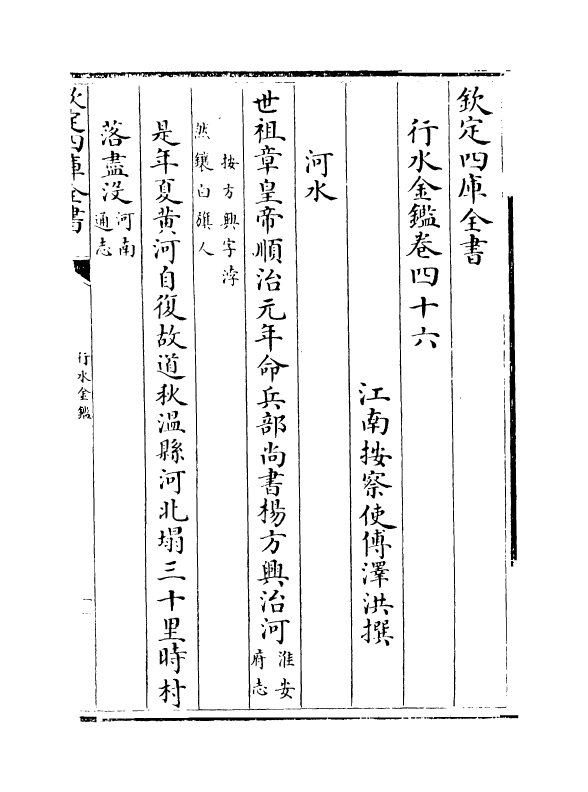 欽定四庫全書
行水金鑑卷四十六
江南按察使傅澤洪撰
河水
世祖章皇帝順治元年命兵部尚書楊方興治河淮安府志
按方興字浡然鑲白旗人
是年夏黃河自復故道秋溫縣河北塌三十里時村
落盡没河南通志
欽定四庫全書
行水金鑑
一